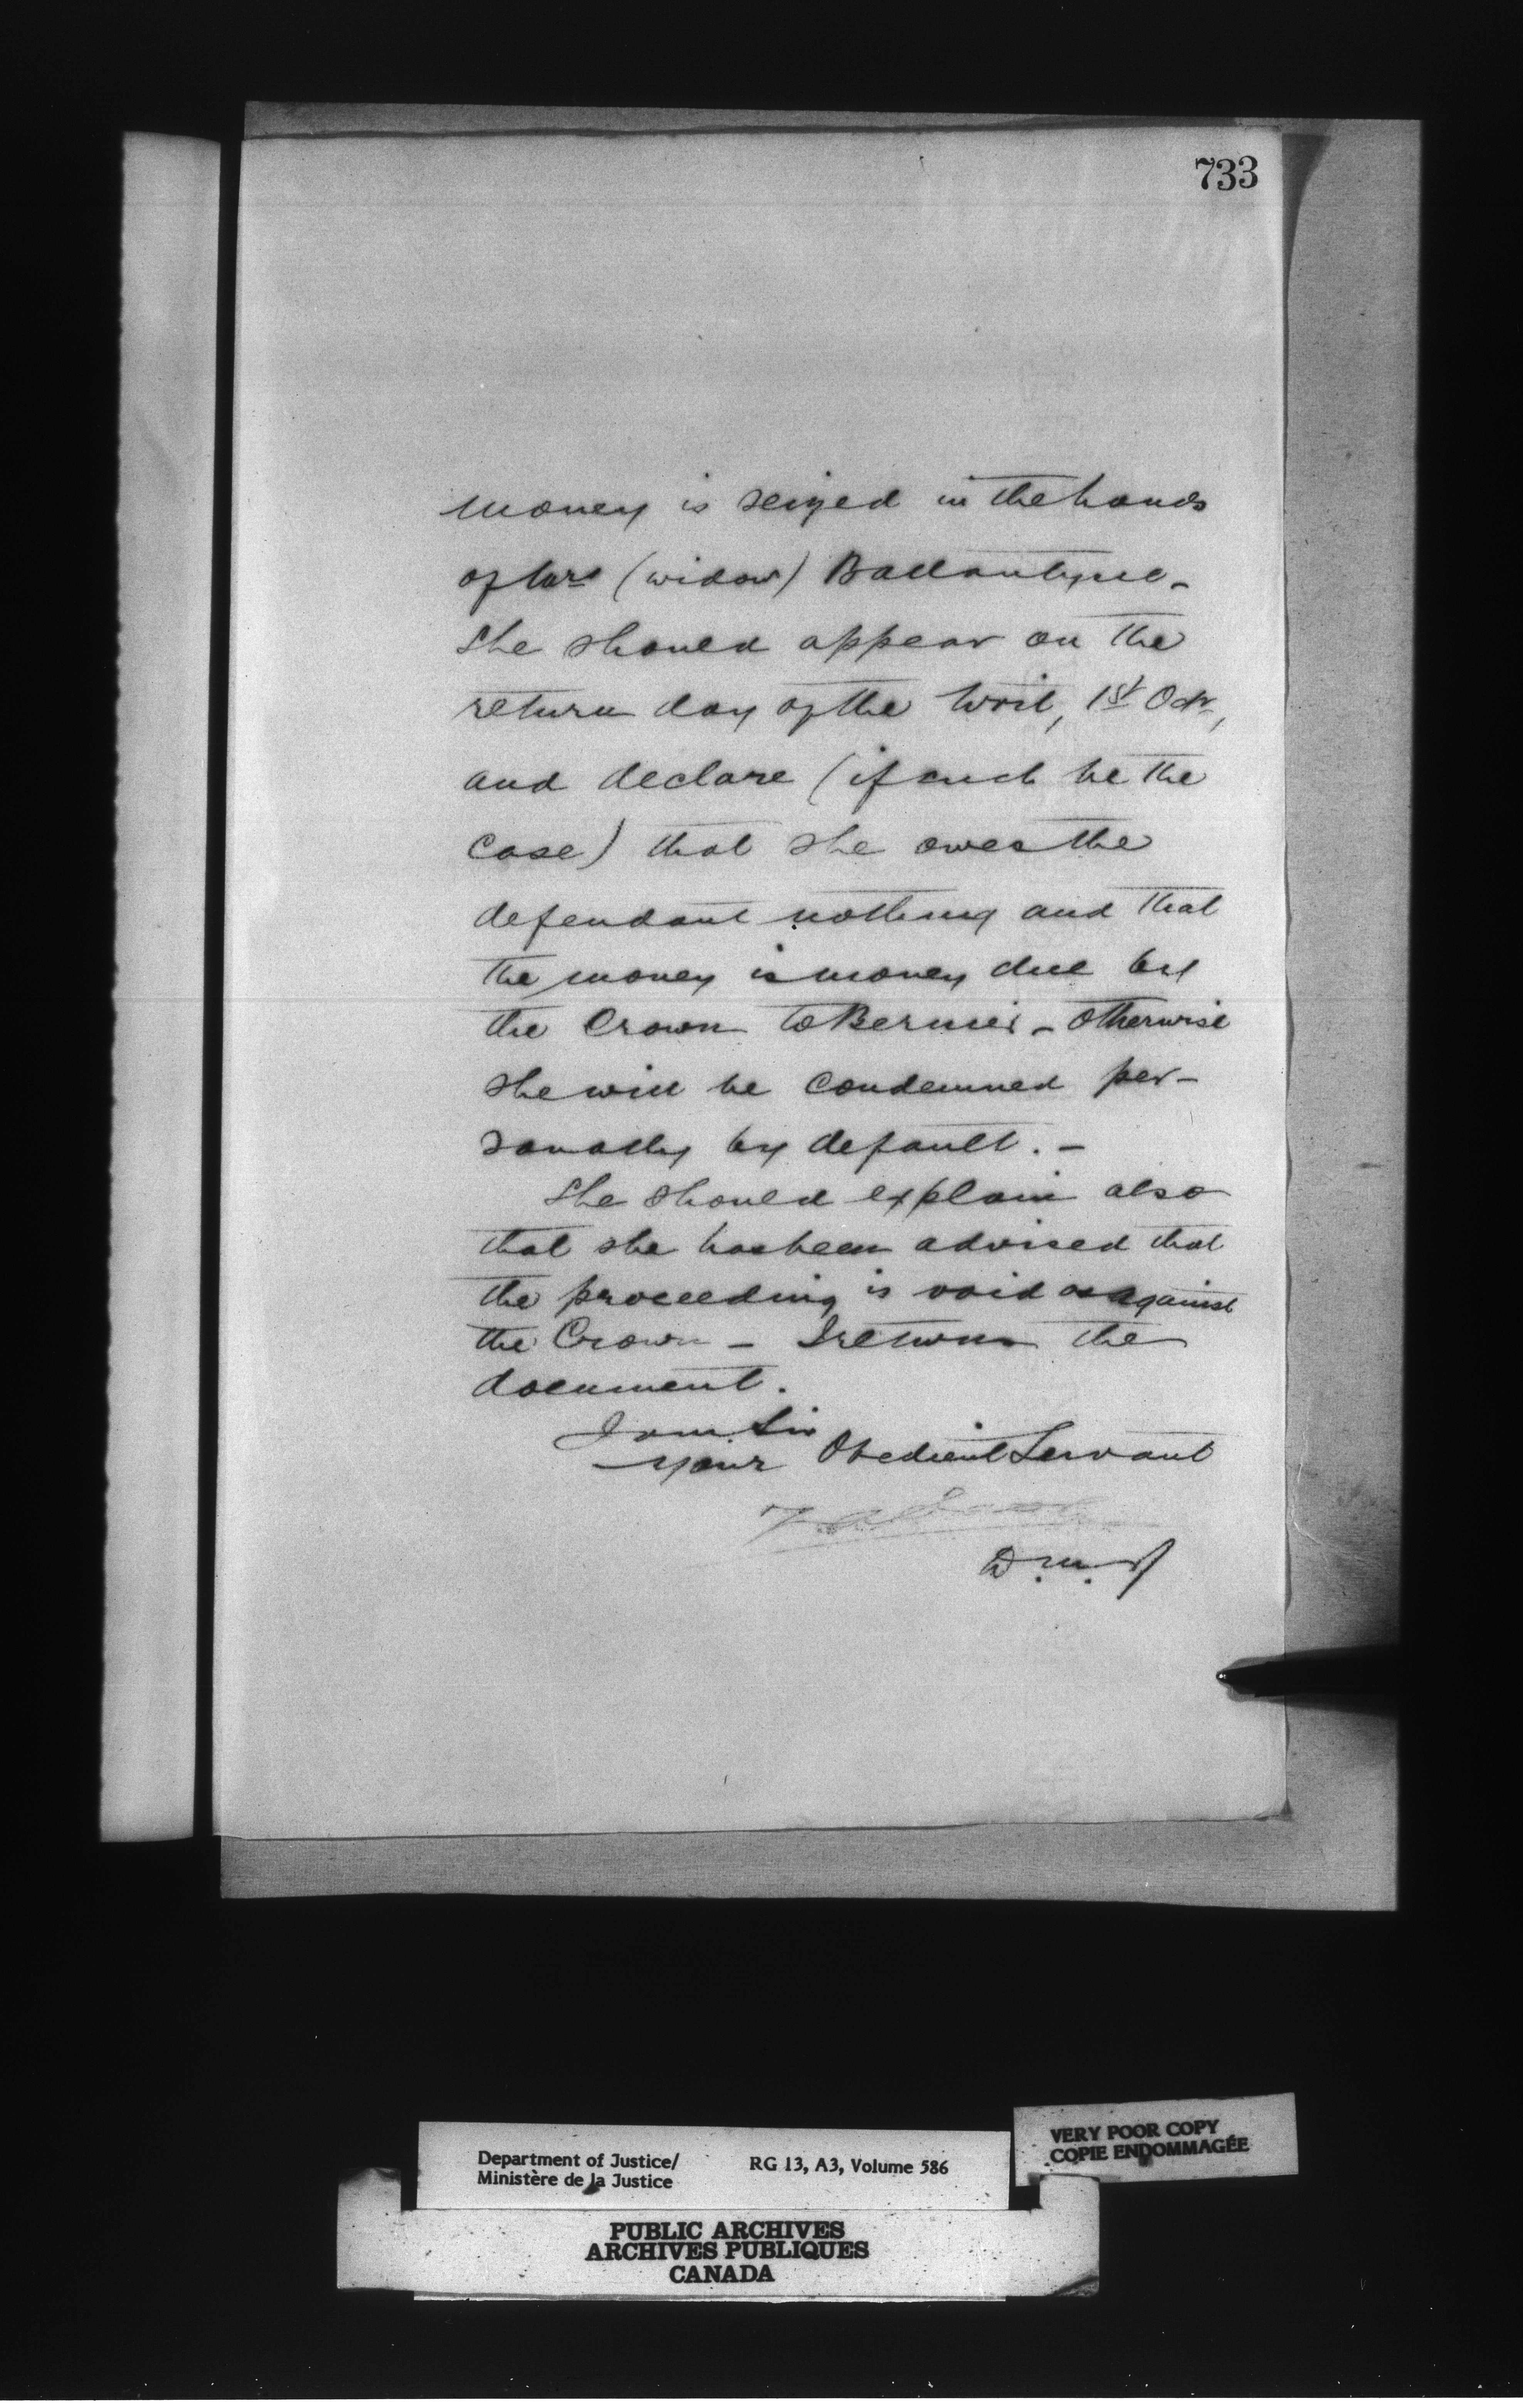 733
money is seized in the hands
of Mrs (widow) Ballantyne -
She should appear on the
return day of the Writ, 1st Octr,
and declare (if such be the
case) that she owes the
defendant nothing and that
the money is money due by
the Crown to Bernier - otherwise
she will be condemned per-
sonally by default. -
She should explain also
that she has been advised that
the proceeding is void as against
the Crown - I return the
document.
I am Sir
Your Obedient Servant
D.M.J
Department of Justice/
Ministère de la Justice
RG 13, A3, Volume 586
VERY POOR COPY
COPIE ENDOMMAGÉE
PUBLIC ARCHIVES
ARCHIVES PUBLIQUES
CANADA